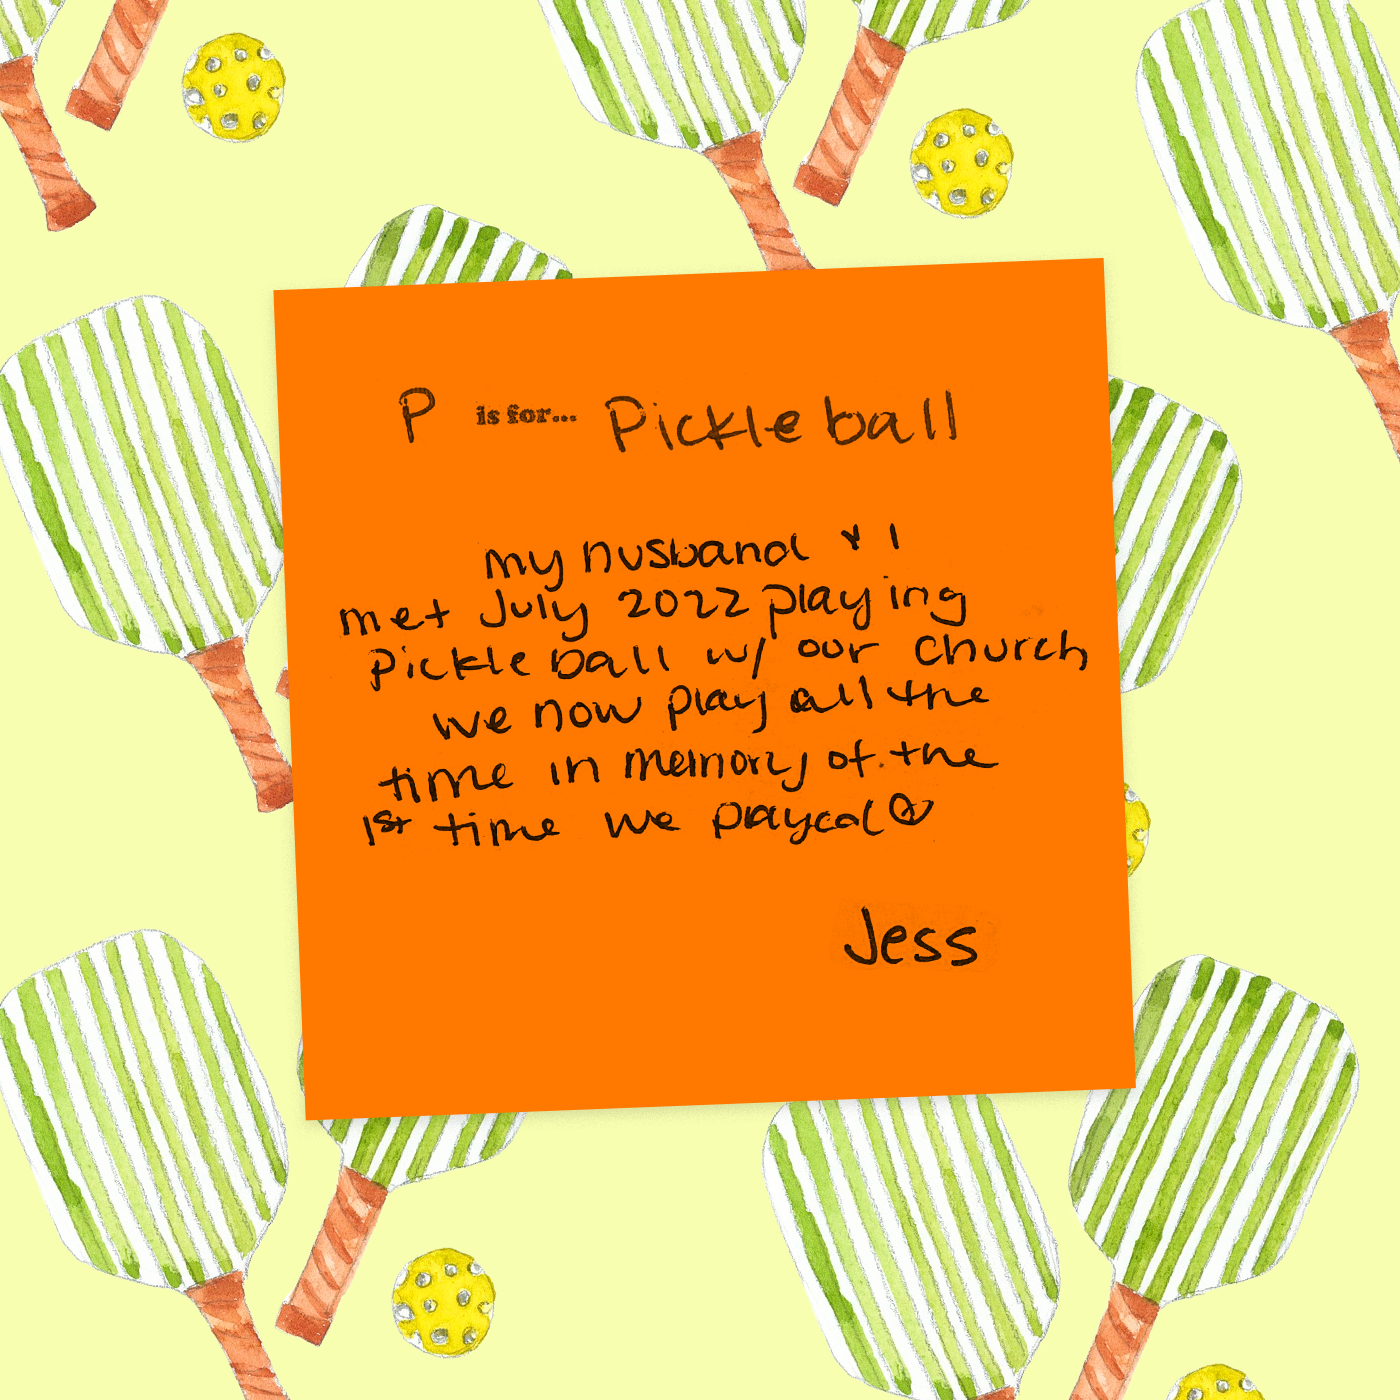 P is for... Pickleball
my husband & I
met July 2022 playing
pickleball w/ our church
we now play all the
time in memory of the
1st time we played
Jess